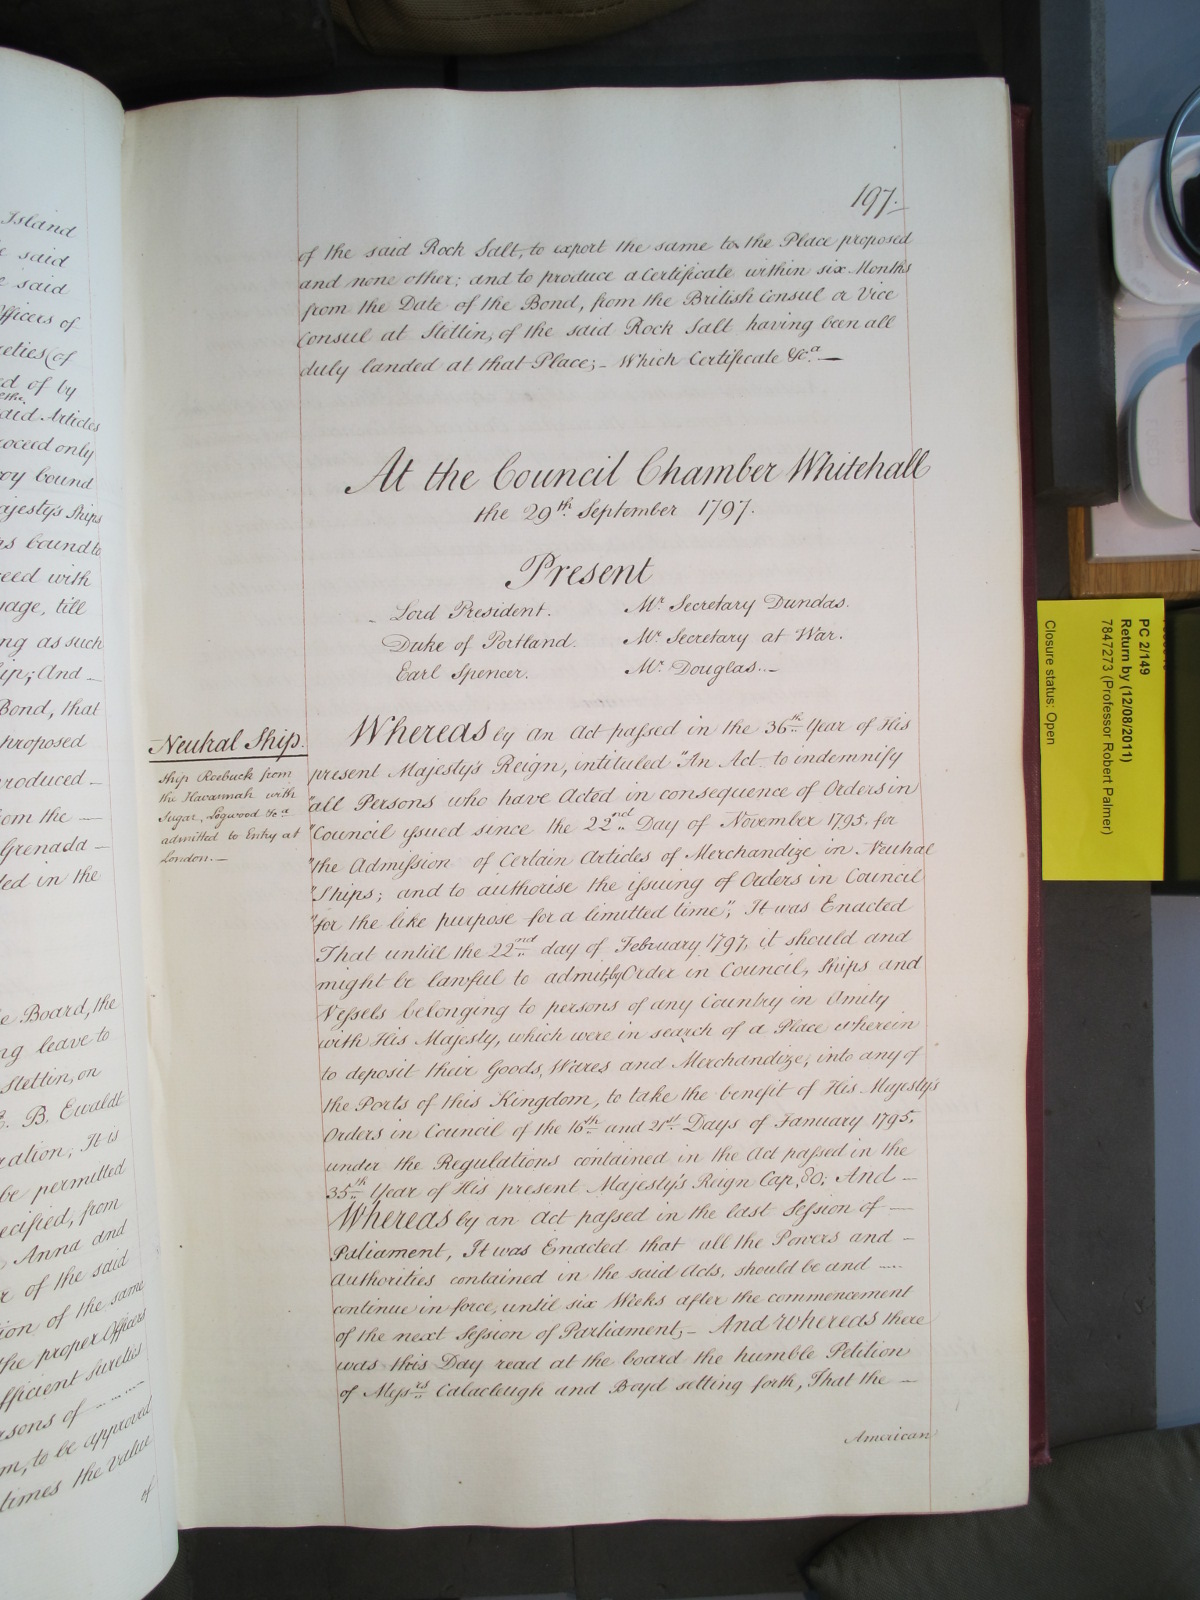 Island
said
said
Officers of
of by
the
said Articles
proceed only
bound
Majesty's Ships
bound to
with
till
as such
Ship; And
Bond, that
proposed
produced
from the
Grenada
in the
Board, the
leave to
Stettin, on
E. B. Ewaldt
It is
be permitted
specified, from
Anna and
of the said
of the same
the proper Officers
sufficient Sureties
of
to be approved
times the value
of
197.
of the said Rock Salt, to export the same to the Place proposed
and none other; and to produce a Certificate within six Months
from the Date of the Bond, from the British Consul or Vice
Consul at Stettin, of the said Rock Salt having been all
duly landed at that Place; - Which Certificate &c.a —
At the Council Chamber Whitehall
the 29th. September 1797.
Present
Lord President. Mr. Secretary Dundas.
Duke of Portland. Mr. Secretary at War.
Earl Spencer. Mr. Douglas. —
Neutral Ship.
Ship Roebuck from
the Havannah with
Sugar, Logwood &c.a
admitted to Entry at
London. —
Whereas by an Act passed in the 36th. Year of His
present Majesty's Reign, intituled "An Act to indemnify
"all Persons who have Acted in consequence of Orders in
"Council issued since the 22nd. Day of November 1795. for
"the Admission of Certain Articles of Merchandize in Neutral
"Ships; and to authorise the issuing of Orders in Council
"for the like purpose for a limitted time", It was Enacted
That untill the 22nd. day of February 1797, it should and
might be lawful to admit, by Order in Council, Ships and
Vessels belonging to persons of any Country in Amity
with His Majesty, which were in search of a Place wherein
to deposit their Goods, Wares and Merchandize, into any of
the Ports of this Kingdom, to take the benefit of His Majesty's
Orders in Council of the 16th. and 21st. Days of January 1795,
under the Regulations contained in the Act passed in the
35th. Year of His present Majesty's Reign Cap. 80; And —
Whereas by an Act passed in the last Session of —
Paliament, It was Enacted that all the Powers and —
Authorities contained in the said Acts, should be and —
continue in force, until six Weeks after the commencement
of the next Session of Parliament; - And Whereas there
was this Day read at the board the humble Petition
of Messrs. Calacleugh and Boyd setting forth, That the —
American
PC 2/149
Return by (12/08/2011)
7847273 (Professor Robert Palmer)
Closure status: Open